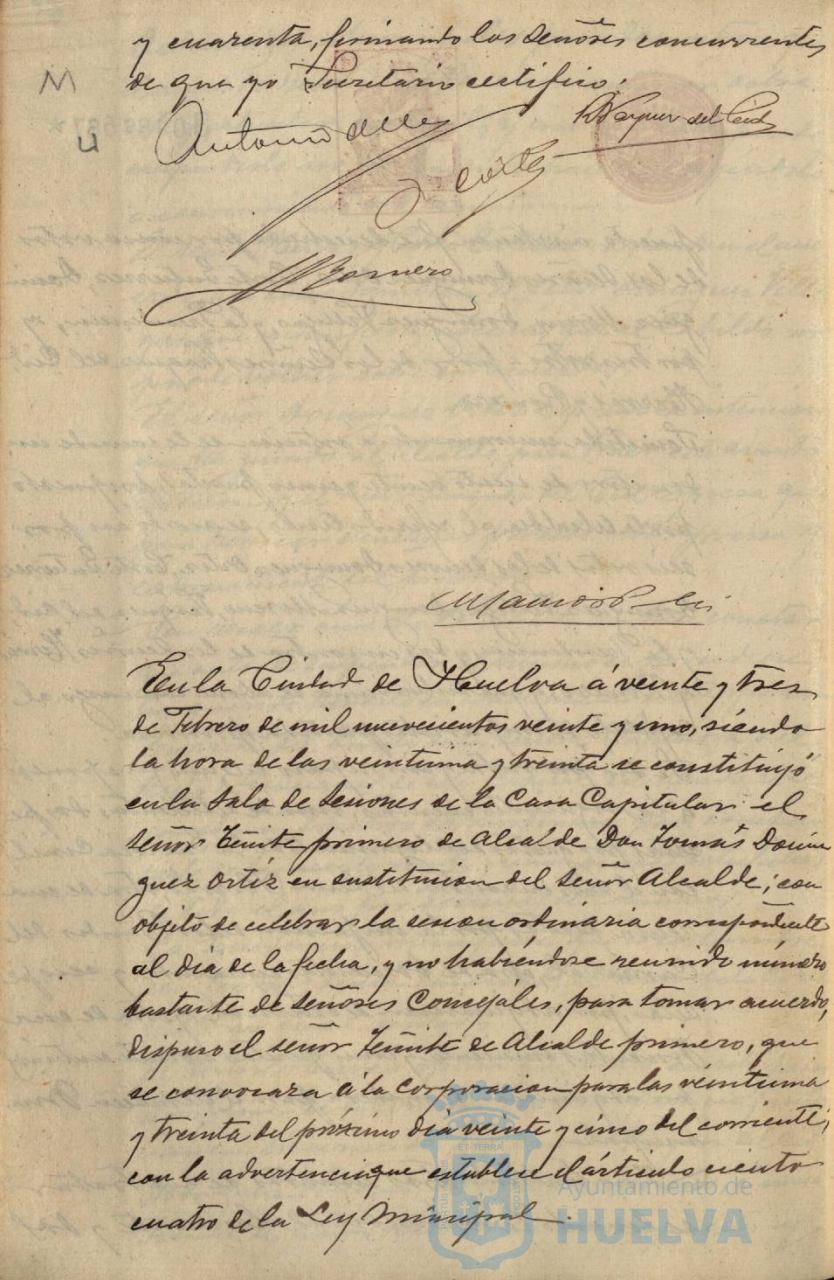 y cuarenta, firmando los señores concurrentes
de que yo Secretario certifico.
Antonio
Vazquez del Cid
Cortés
Romero
En la Ciudad de Huelva á veinte y tres
de Febrero de mil nuevecientos veinte y uno, siendo
la hora de las veintiuna y treinta se constituyó
en la Sala de Sesiones de la Casa Capitular el
señor Teñite primero de Alcalde Don Tomás Domin
guez Ortiz en sustitucion del señor Alcalde; con
objeto de celebrar la sesion ordinaria correspondiente
al dia de la fecha, y no habiéndose reunido número
bastante de señores Concejáles, para tomar acuerdo,
dispuso el señor Teñite de Alcalde primero, que
se convocara á la Corporacion para las veintiuna
y treinta del próximo dia veinte y cinco del corriente;
con la advertencia que establece el árticulo ciento
cuatro de la Ley Municipal.
Ayuntamiento de
HUELVA